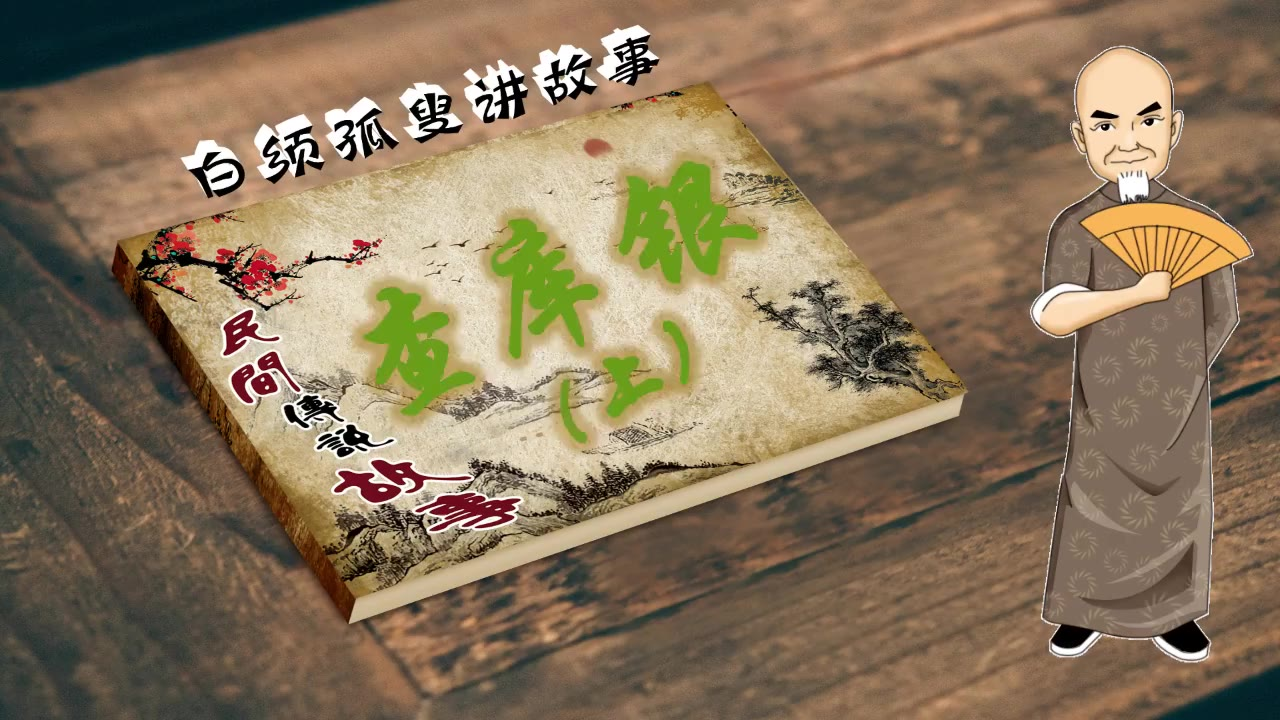 白须孤叟讲故事
查库银
(上)
民間傳說故事